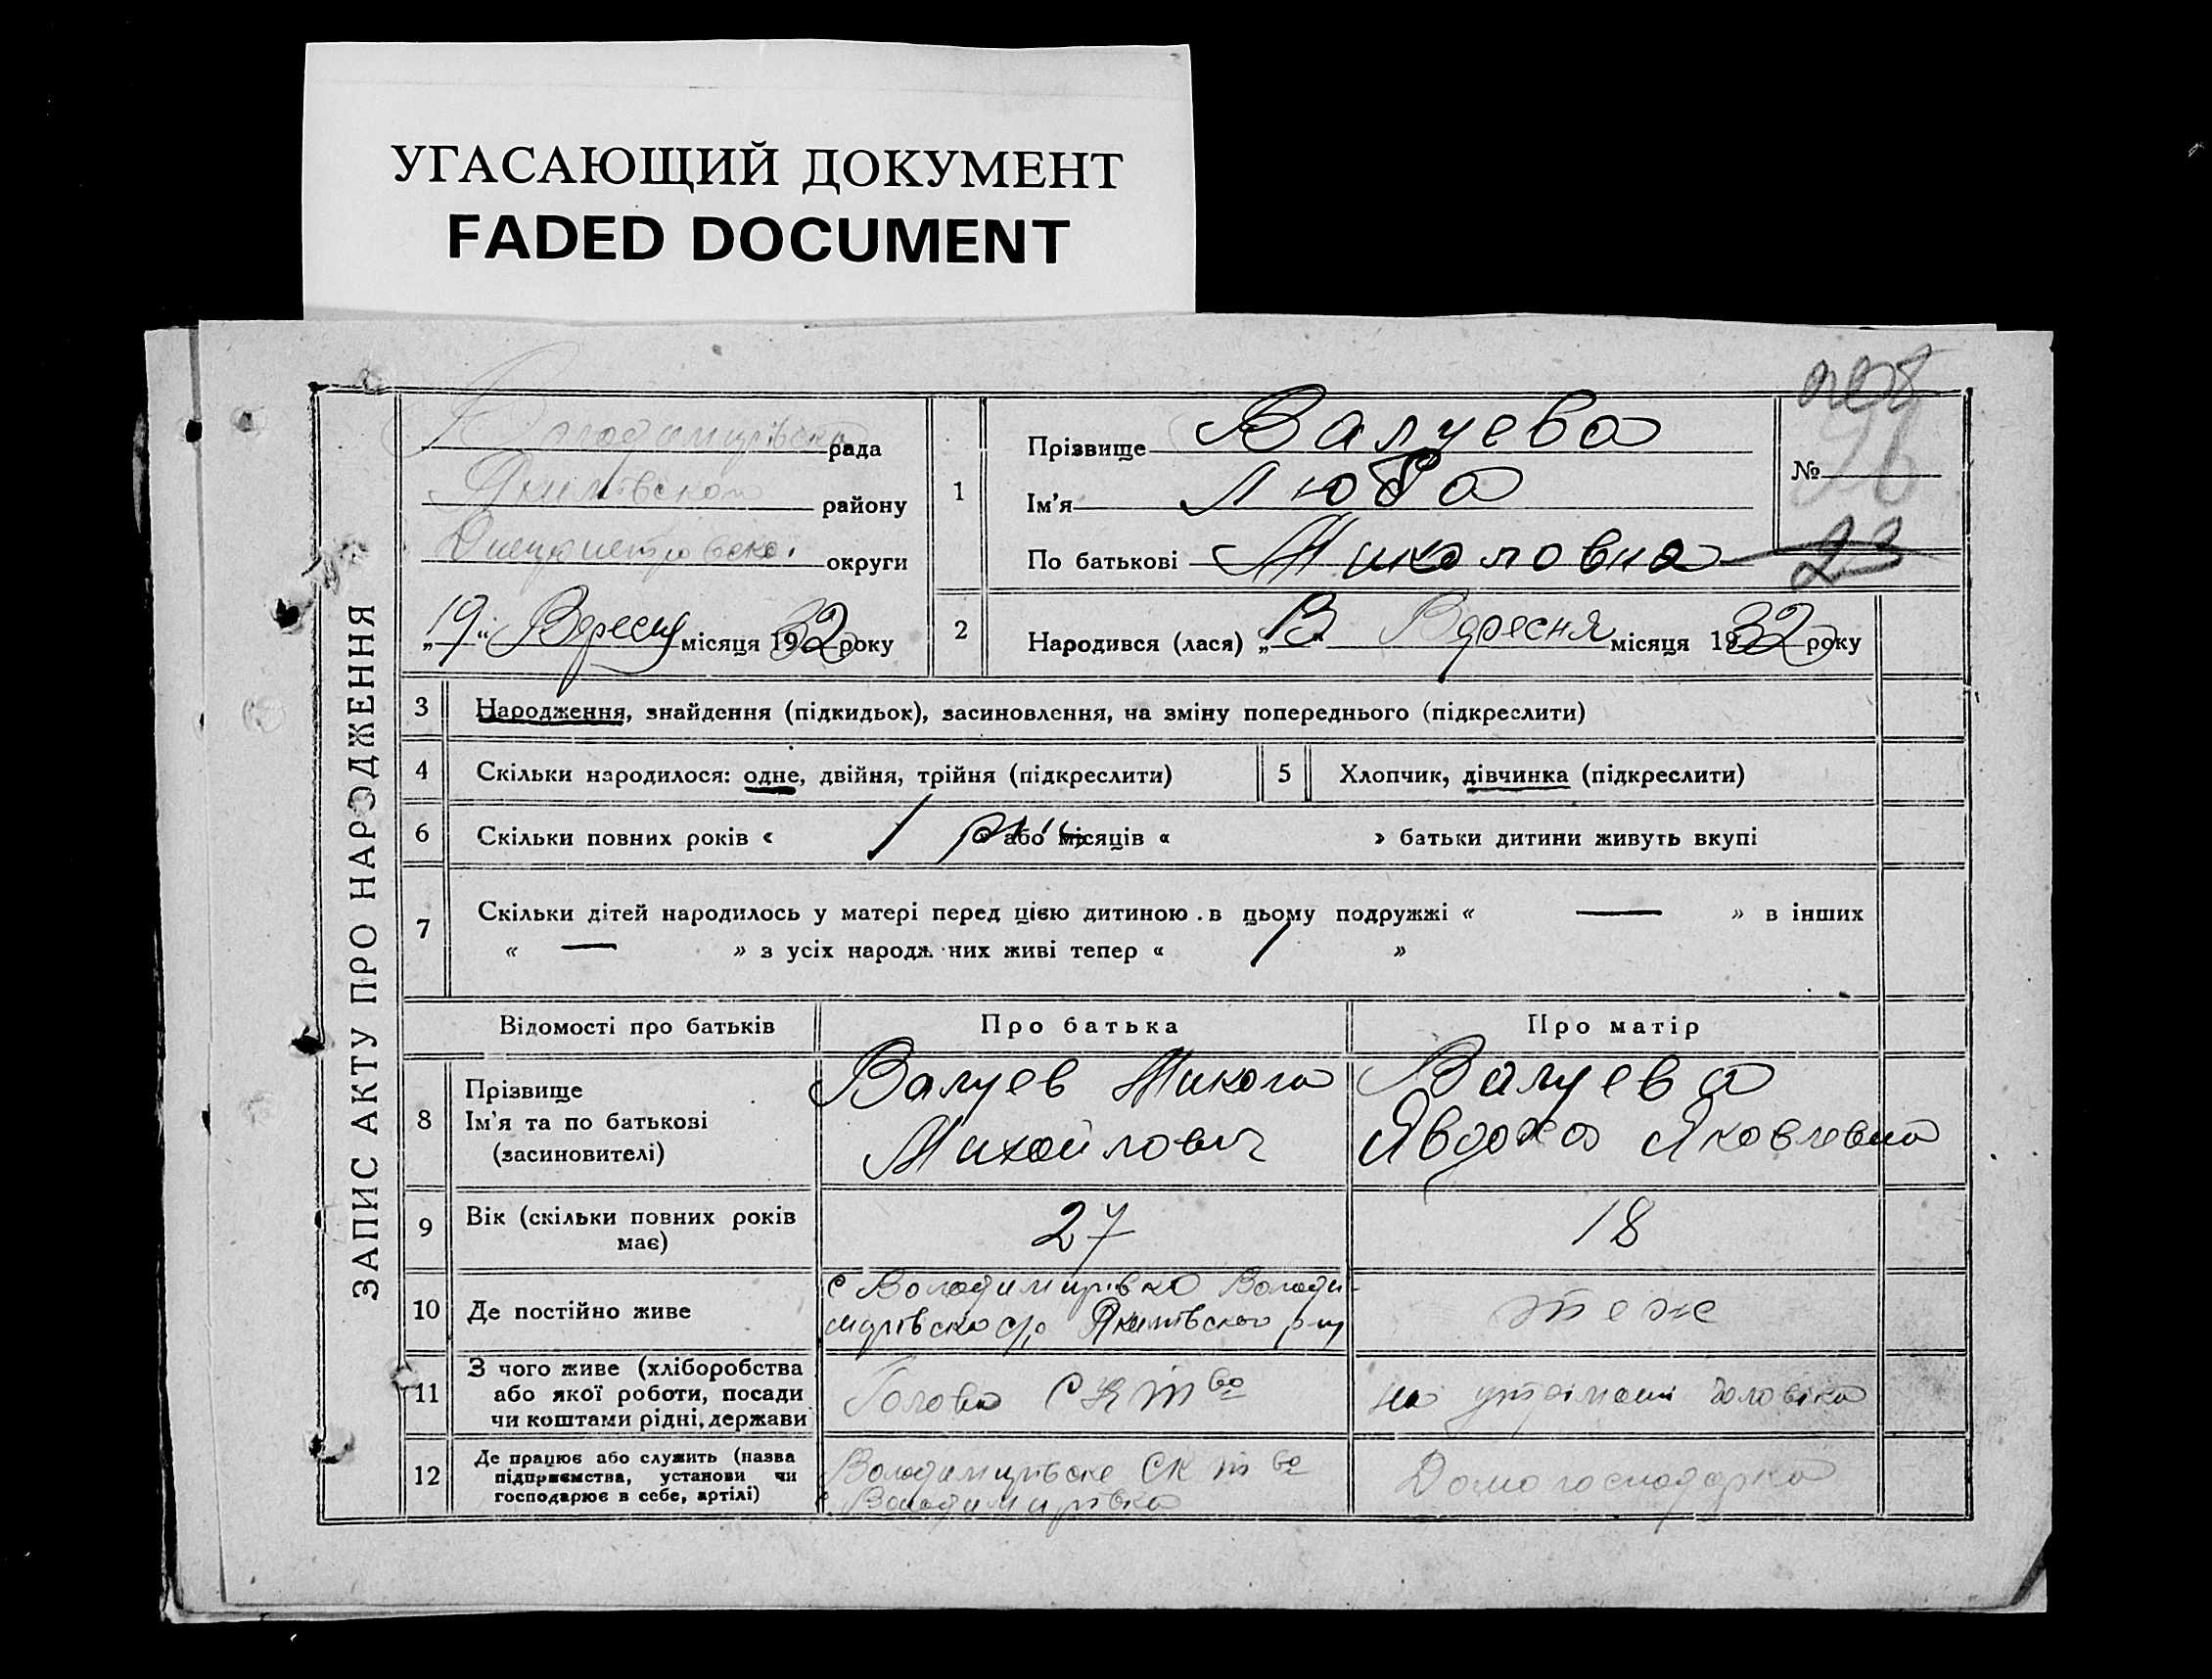 УГАСАЮЩИЙ ДОКУМЕНТ
FADED DOCUMENT
ЗАПИС АКТУ ПРО НАРОДЖЕННЯ
Володимирівска рада
Якимівского району
Днепропетровскої округи
„19“ Вересня місяця 1932 року
1
Прізвище Валуева
Ім'я Люба
По батькові Миколовна
№ 46
23
2
Народився (лася) „13“ Вересня місяця 1932 року
3 Народження, знайдення (підкидьок), засиновлення, на зміну попереднього (підкреслити)
4 Скільки народилося: одне, двійня, трійня (підкреслити)
5 Хлопчик, дівчинка (підкреслити)
6 Скільки повних років « 1 рік » або місяців « » батьки дитини живуть вкупі
7 Скільки дітей народилось у матері перед цією дитиною в цьому подружжі « — » в інших
« — » з усіх народж них живі тепер « 1 »
Відомості про батьків Про батька Про матір
8
Прізвище
Ім'я та по батькові
(засиновителі)
Валуев Микола
Михайлович
Валуева
Явдоха Яковлевна
9
Вік (скільки повних років
має)
27
18
10 Де постійно живе
с Володимирівка Володи-
мирівска с/р Якимівского р-ну
теже
11
З чого живе (хліборобства
або якої роботи, посади
чи коштами рідні, держави
Голова СК т во
на утріманні чоловіка
12
Де працює або служить (назва
підприємства, установи чи
господарює в себе, артілі)
Володимирівске СК т во
с Володимирівка
Домогосподарка